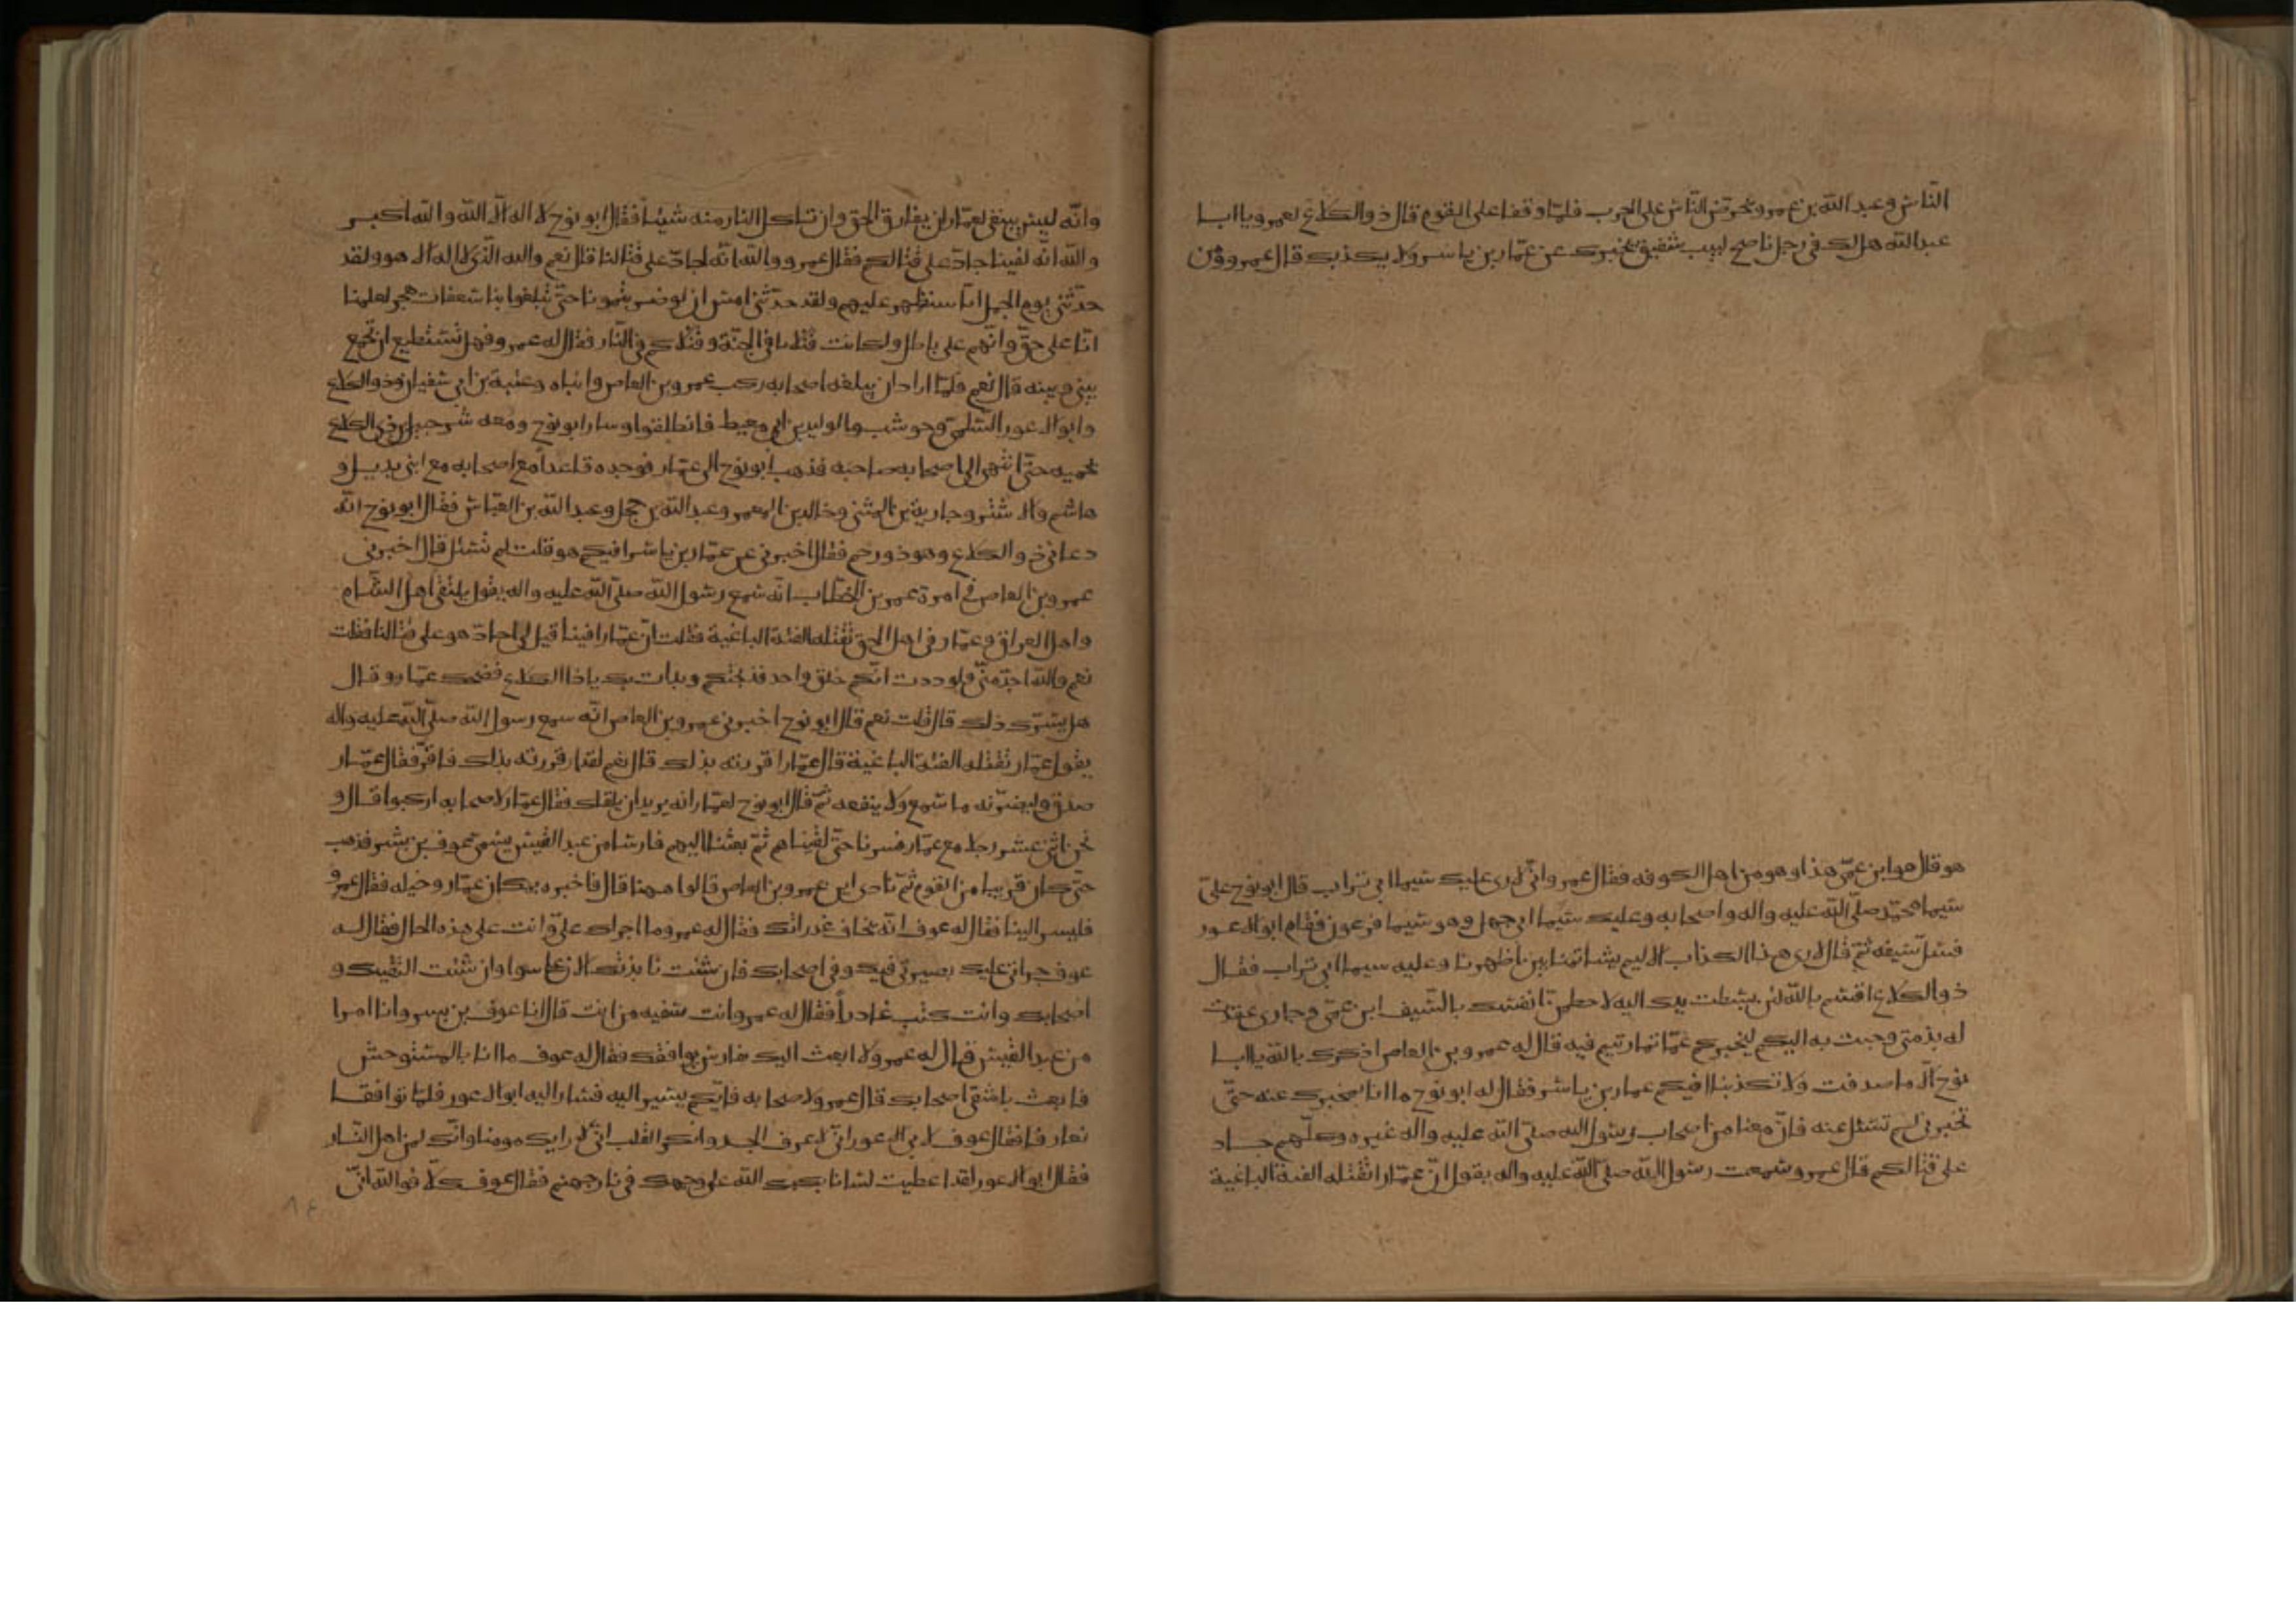 الناس وعبد الله بن عمرو يحرض الناس على الحرب فلما وقفا على القوم قال ذو الكلاع لعمرو يا ابا
عبد الله هل لك في رجل ناصح لبيب شفيق يخبرك عن عمار بن ياسر ولا يكذبك قال عمرو ومن
هو قال هو ابن عمي هذا وهو من اهل الكوفه فقال عمرو واني لارى عليك سيما ابي تراب قال ابو نوح علي
سيما محمد صلى الله عليه واله واصحابه وعليك سيما ابي جهل وهو سيما فرعون فقام ابو الاعور
فسل سيفه ثم قال لا ارى هذا الكذاب الاليم يشاتمنا بين اظهرنا وعليه سيما ابي تراب فقال
ذو الكلاع اقسم بالله لئن بسطت يدك اليه لاحطمن انفك بالسيف ابن عمي وجاري عقدت
له بذمتي وجئت به اليكم ليخبركم عما تماريتم فيه قال له عمرو بن العاص اذكرك بالله يا ابا
نوح الا ما صدقت ولا تكذبنا افيكم عمار بن ياسر فقال له ابو نوح ما انا بمخبرك عنه حتى
تخبرني لم تسئل عنه فان معنا من اصحاب رسول الله صلى الله عليه واله غيره وكلهم جاد
على قتالكم قال عمرو سمعت رسول الله صلى الله عليه واله يقول ان عمارا تقتله الفئة الباغية
وانه ليس ينبغي لعمار ان يفارق الحق وان تاكل النار منه شيئا فقال ابو نوح لا اله الا الله والله اكبر
والله انه لفينا جاد على قتالكم فقال عمرو والله انه لجاد على قتالنا قال نعم والله الذي لا اله الا هو ولقد
حدثني يوم الجمل انا سنظهر عليهم ولقد حدثني امس ان لو ضربتمونا حتى تبلغوا بنا سعفات هجر لعلمنا
انا على حق وانهم على باطل ولكانت قتلانا في الجنة وقتلاكم في النار فقال له عمرو فهل تستطيع ان تجمع
بيني وبينه قال نعم فلما اراد ان يبلغه اصحابه ركب عمرو بن العاص وابناه وعتبة بن ابي سفيان وذو الكلاع
وابو الاعور السلمي وحوشب والوليد بن ابي معيط فانطلقوا وسار ابو نوح ومعه شرحبيل بن ذي الكلاع
يحميه حتى انتهى الى اصحابه فذهب ابو نوح الى عمار فوجده قاعدا مع اصحابه مع ابني بديل و
هاشم والاشتر وجارية بن المثنى وخالد بن المعمر وعبد الله بن حجل وعبد الله بن العباس فقال ابو نوح انه
دعاني ذو الكلاع وهو ذو رحم فقال اخبرني عن عمار بن ياسر افيكم هو قلت لم تسئل قال اخبرني
عمرو بن العاص في امرة عمر بن الخطاب انه سمع رسول الله صلى الله عليه واله يقول يلتقي اهل الشام
واهل العراق وعمار في اهل الحق تقتله الفئة الباغية فقلت ان عمارا فينا قيل لي اجاد هو على قتالنا فقلت
نعم والله اجد مني ولوددت انكم خلق واحد فذبحتكم وبدات بك يا ذا الكلاع فضحك عمار وقال
هل يسرك ذلك قال قلت نعم قال ابو نوح اخبرني عمرو بن العاص انه سمع رسول الله صلى الله عليه واله
يقول عمار تقتله الفئة الباغية قال عمار اقررته بذلك قال نعم لقد اقررته بذلك فاقر فقال عمار
صدق وليضرنه ما سمع ولا ينفعه ثم قال ابو نوح لعمار انه يريد ان يلقاك فقال عمار لاصحابه اركبوا قال و
نحن اثنى عشر رجلا مع عمار فسرنا حتى لقيناهم ثم بعثنا اليهم فارسا من عبد القيس يسمى عوف بن بشر فذهب
حتى كان قريبا من القوم ثم نادى اين عمرو بن العاص قالوا هيهنا قال فاخبره بمكان عمار وخيله فقال عمرو
فليسر الينا فقال له عوف انه يخاف غدراتك فقال له عمرو وما اجراك علي وانت على هذه الحال فقال له
عوف جراني عليك بصيرتي فيك وفي اصحابك فان شئت نابذتك الان على سوا وان شئت التقيت و
اصحابك وانت كنت غادرا فقال له عمرو وانت سفيه من انت قال انا عوف بن بسر وانا امرا
من عبد القيس قال له عمرو الا ابعث اليك بفارس يواقفك فقال له عوف ما انا بالمستوحش
فابعث باشقى اصحابك قال عمرو لاصحابه فايكم يسير اليه فسار اليه ابو الاعور فلما تواقفا
تعارفا فقال عوف لابي الاعور اني لاعرف الجسد وانكر القلب اني لا اراك مومنا وانك لمن اهل النار
فقال ابو الاعور لقد اعطيت لسانا يكبك الله على وجهك في نار جهنم فقال عوف كلا فوالله اني